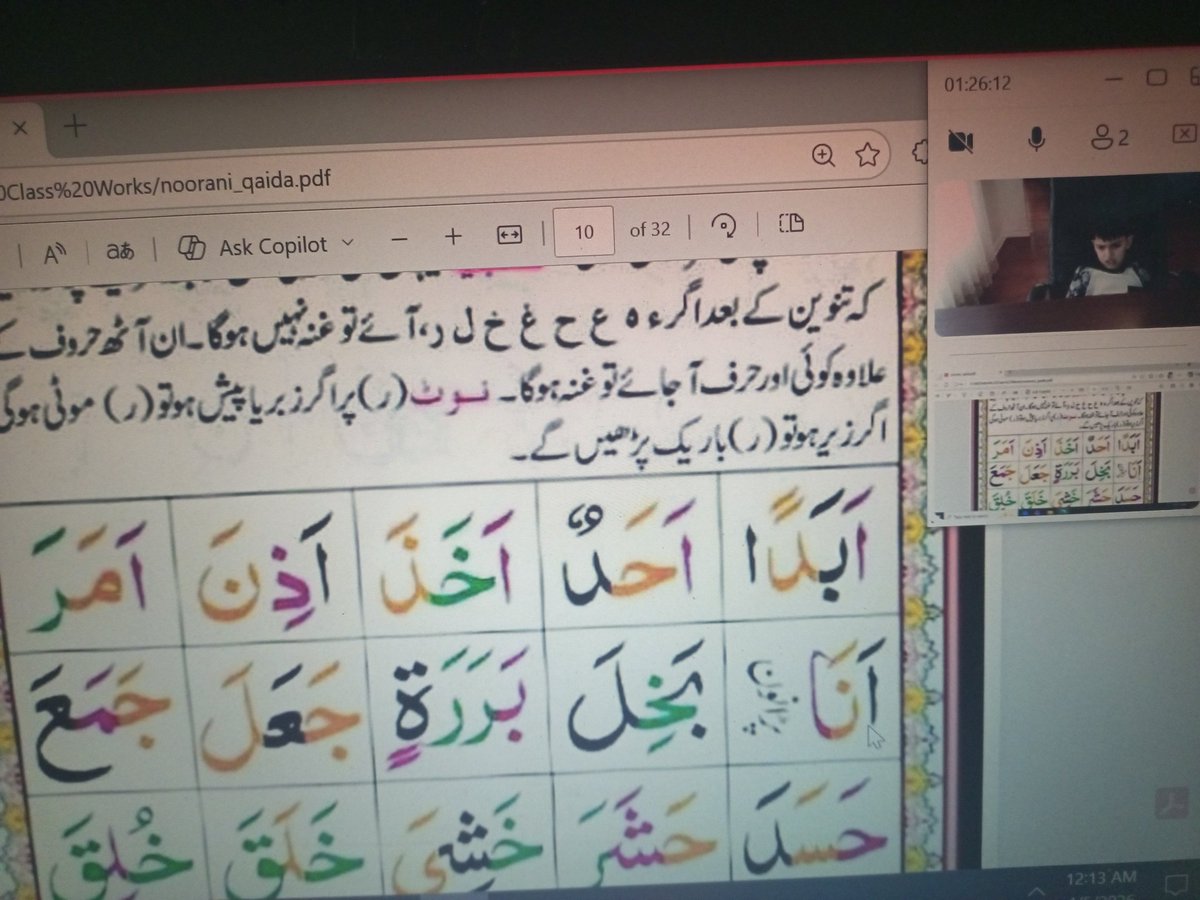 01:26:12
2
0Class%20Works/noorani_qaida.pdf
Ask Copilot
10 of 32
کہ تنوین کے بعد اگر ء ہ ع ح غ خ ل ر، آئے تو غنہ نہیں ہوگا۔ ان آٹھ حروف کے
علاوہ کوئی اور حرف آ جائے تو غنہ ہوگا۔ نوٹ (ر) پر اگر زبر یا پیش ہو تو (ر) موٹی ہوگی
اگر زیر ہو تو (ر) باریک پڑھیں گے۔
اَبَدًا اَحَدٌ اَخَذَ اَذِنَ اَمَرَ
اَنَا بَخِلَ بَرَرَةٍ جَعَلَ جَمَعَ
حَسَدَ حَشَرَ خَشِیَ خَلَقَ خُلِقَ
12:13 AM